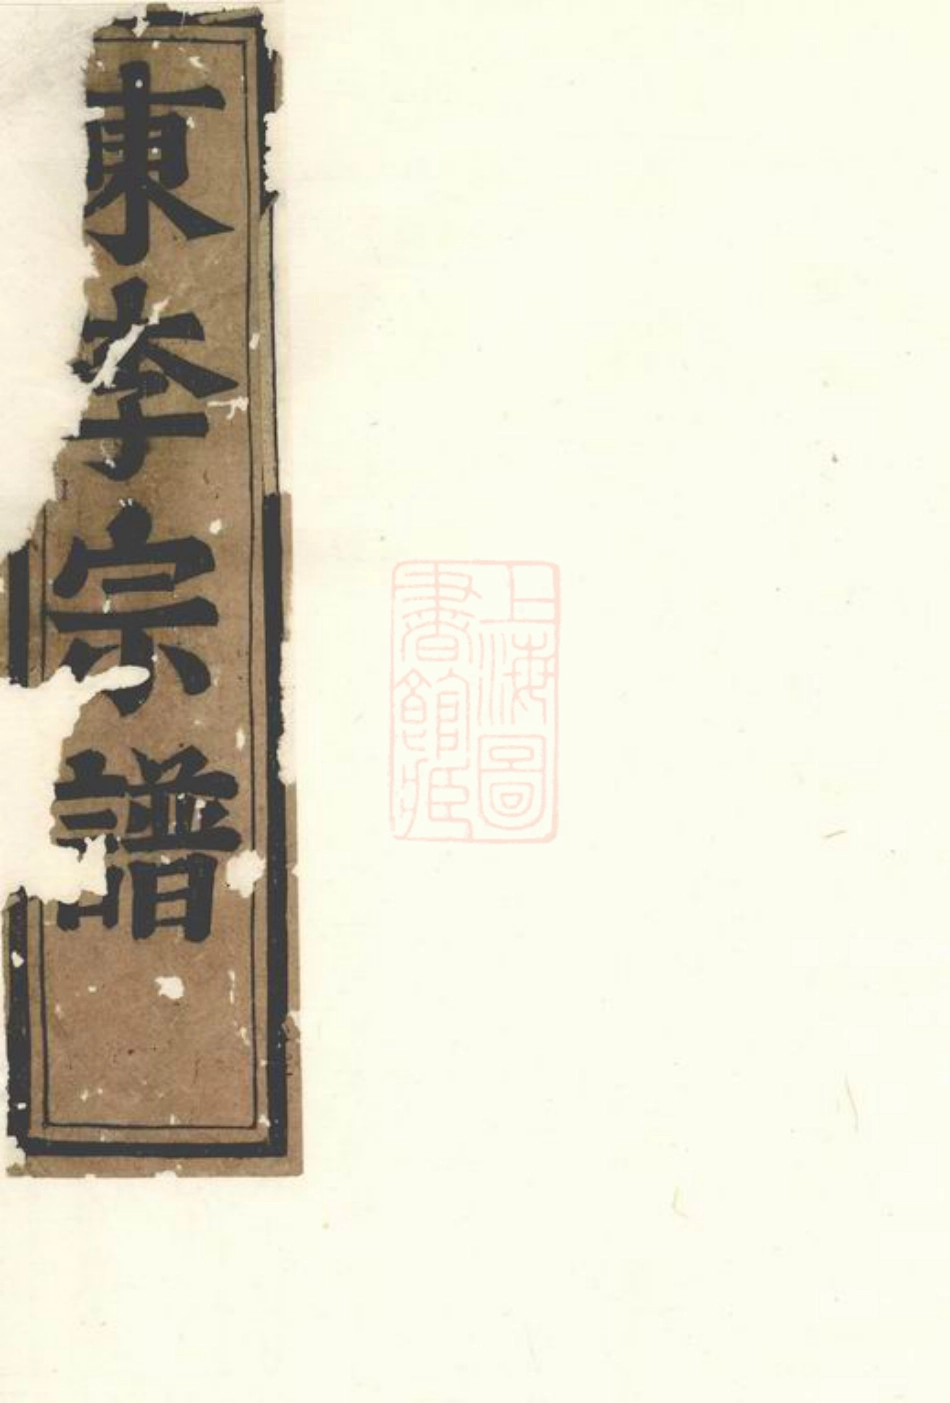 東李宗譜
上海圖
書館藏